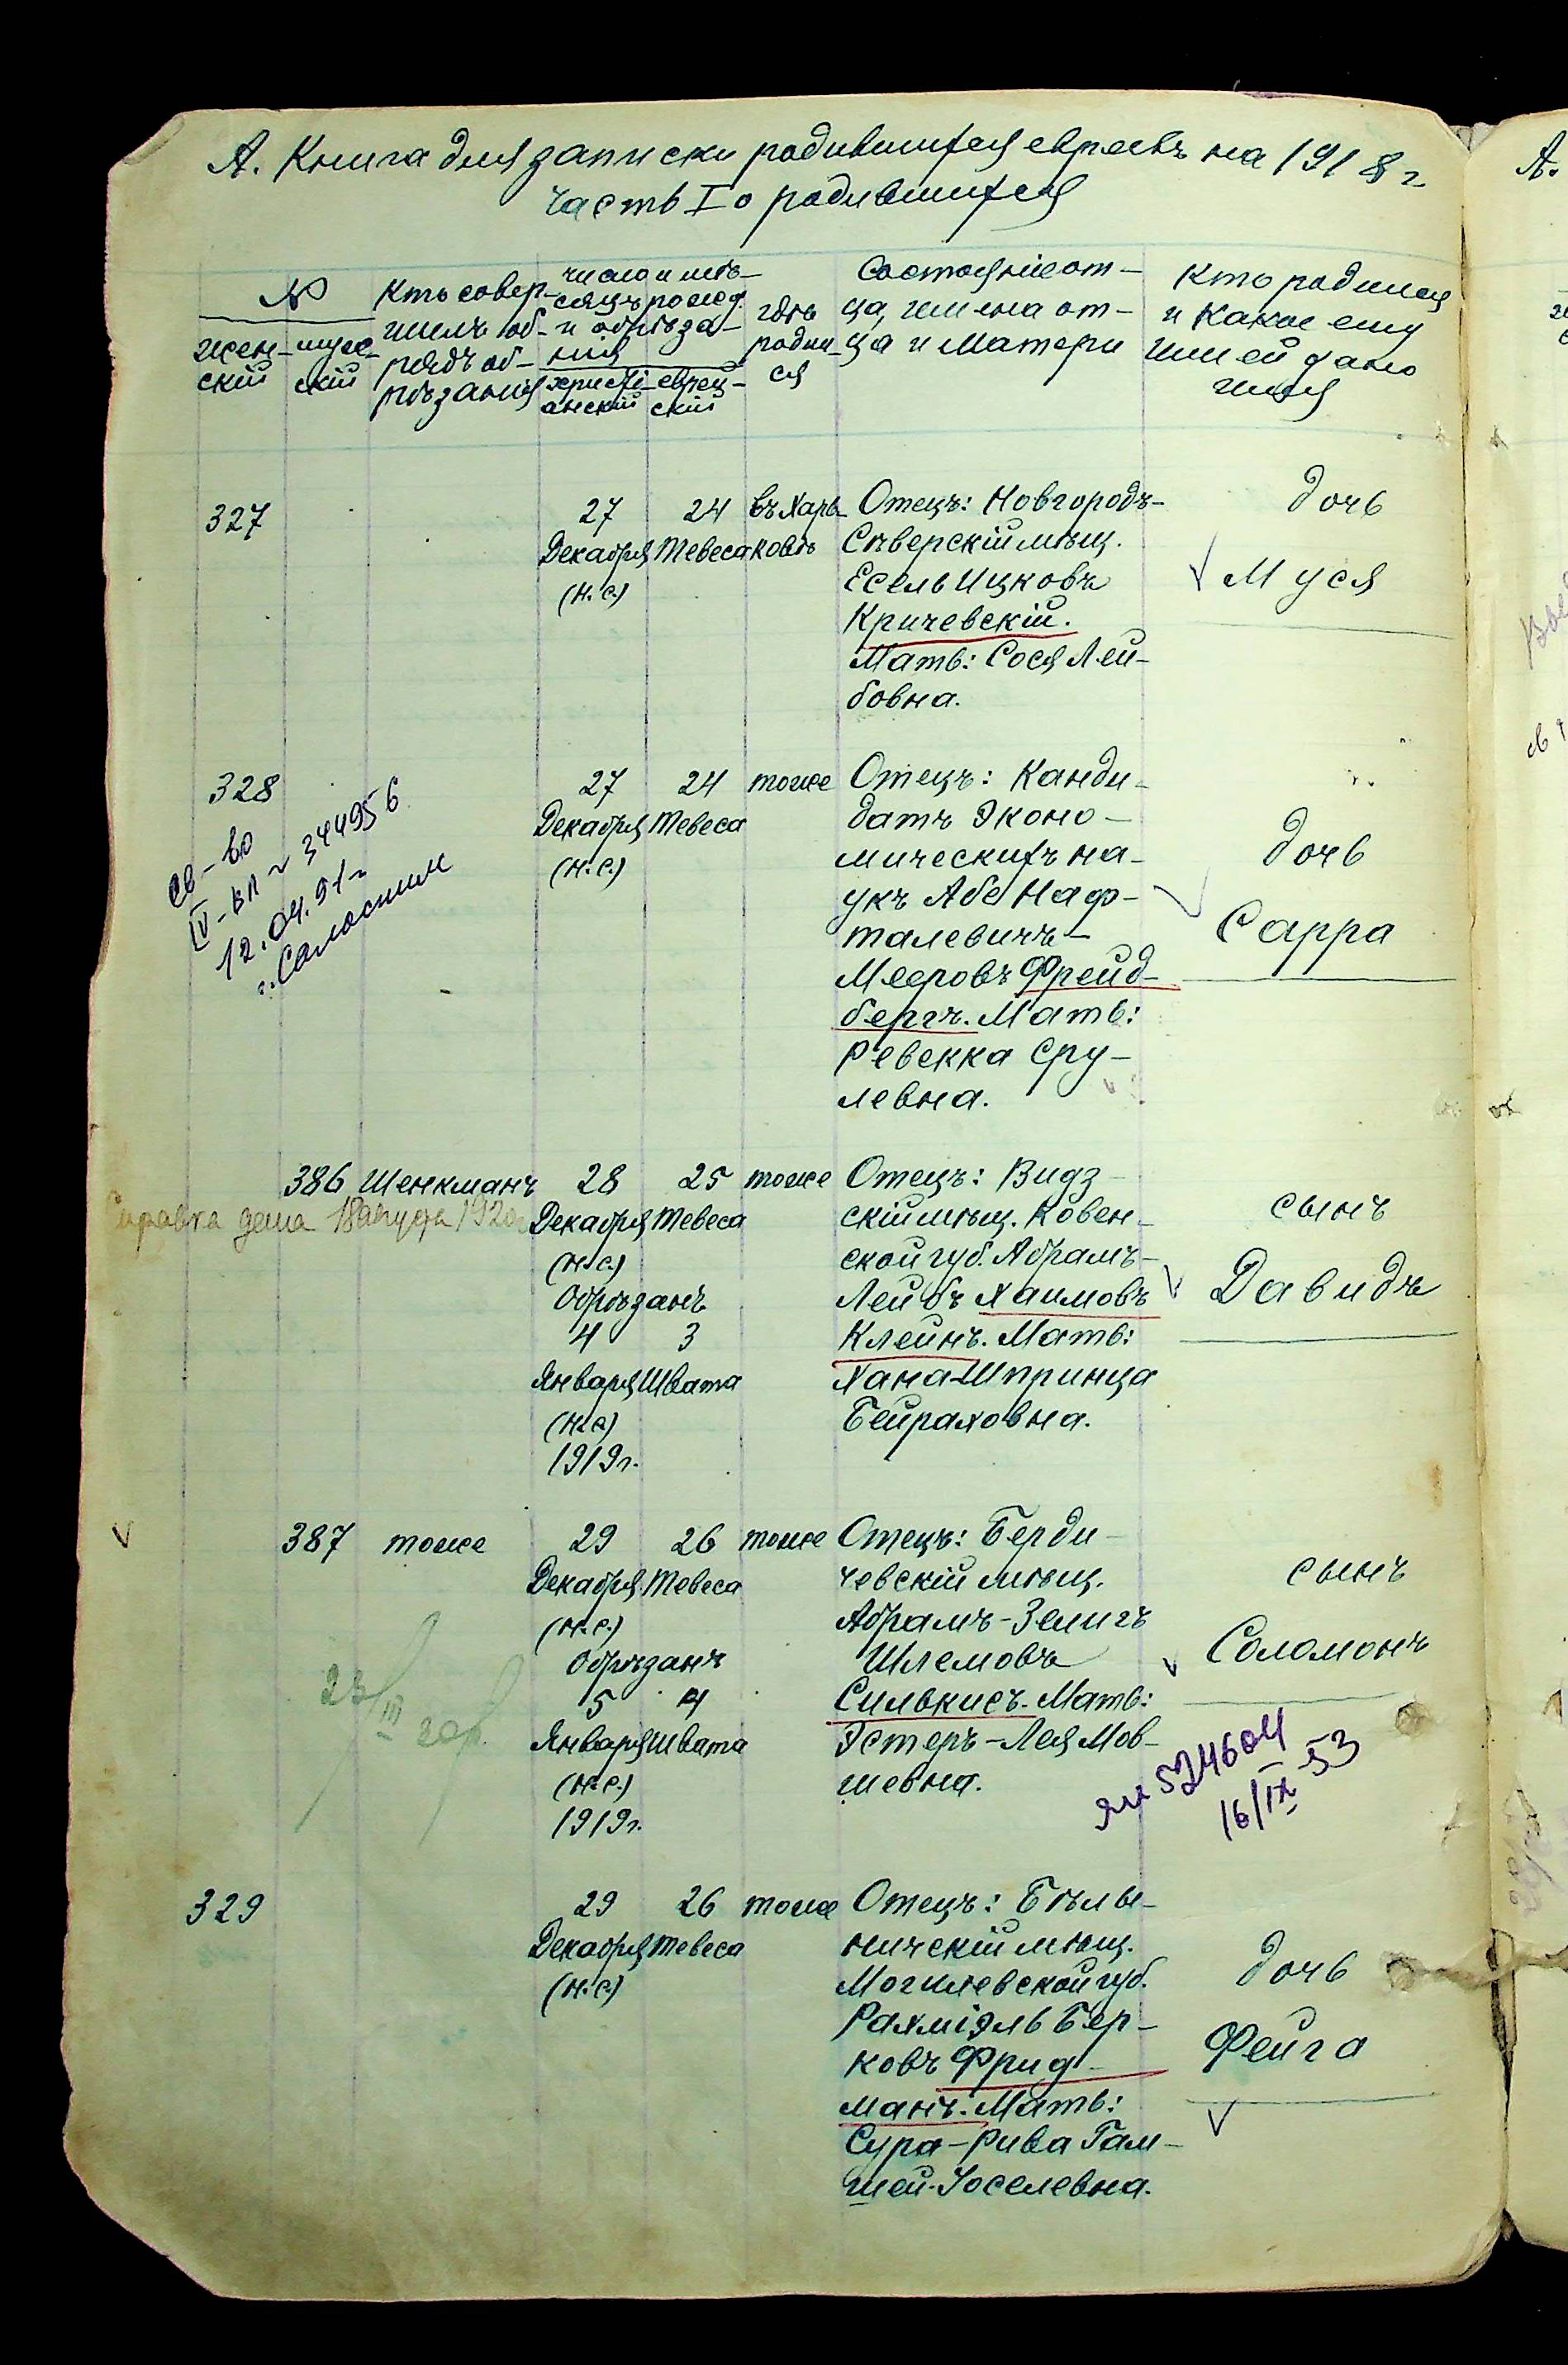 А. Книга для записки родившихся евреевъ на 1918 г.
Часть I о родившихся
№
жен-
скій
муже-
скій
Кто совер-
шилъ об-
рядъ об-
рѣзанія
число и мѣ-
сяцъ рожд.
и обрѣза-
нія
христі-
анскій
еврей-
скій
гдѣ
родил-
ся
Состояніе от-
ца, имена от-
ца и матери
Кто родился
и какое ему
или ей дано
имя
327
27
Декабря
(н.с.)
24
Тевеса
въ Харь-
ковѣ
Отецъ: Новгородъ-
Сѣверскій мѣщ.
Есель Ицковъ
Кричевскій.
Мать: Сося Лей-
бовна.
дочь
Муся
328
св-во
IV-ВЛ № 344956
12.04.51 г.
27
Декабря
(н.с.)
24
Тевеса
тоже
Отецъ: Канди-
датъ Эконо-
мическихъ на-
укъ Абе Наф-
талевичъ-
Мееровъ Фрейд-
бергъ. Мать:
Ревекка Сру-
левна.
дочь
Сарра
386
Шенкманъ
Справка дана 18 августа 1920
28
Декабря
(н.с.)
25
Тевеса
Обрѣзанъ
4
Января
(н.с)
1919г.
3
Швата
тоже
Отецъ: Видз-
скій мѣщ. Ковен-
ской губ. Абрамъ-
Лейбъ Хаимовъ
Клейнъ. Мать:
Хана-Шпринца
Бейраховна.
сынъ
Давидъ
387
тоже
23/III
29
Декабря
(н.с.)
26
Тевеса
Обрѣзанъ
5
Января
(н.с.)
1919г.
4
Швата
тоже
Отецъ: Берди-
чевскій мѣщ.
Абрамъ-Зелигъ
Шлемовъ
Силькисъ. Мать:
Эстеръ-Лея Мов-
шевна.
сынъ
Соломонъ
524604
16/IX-53
329
29
Декабря
(н.с.)
26
Тевеса
тоже
Отецъ: Бѣлы-
ничскій мѣщ.
Могилевской губ.
Рахміэль Бер-
ковъ Фрид-
манъ. Мать:
Сура-Рива Гам-
шей-Іоселевна.
дочь
Фейга
А.